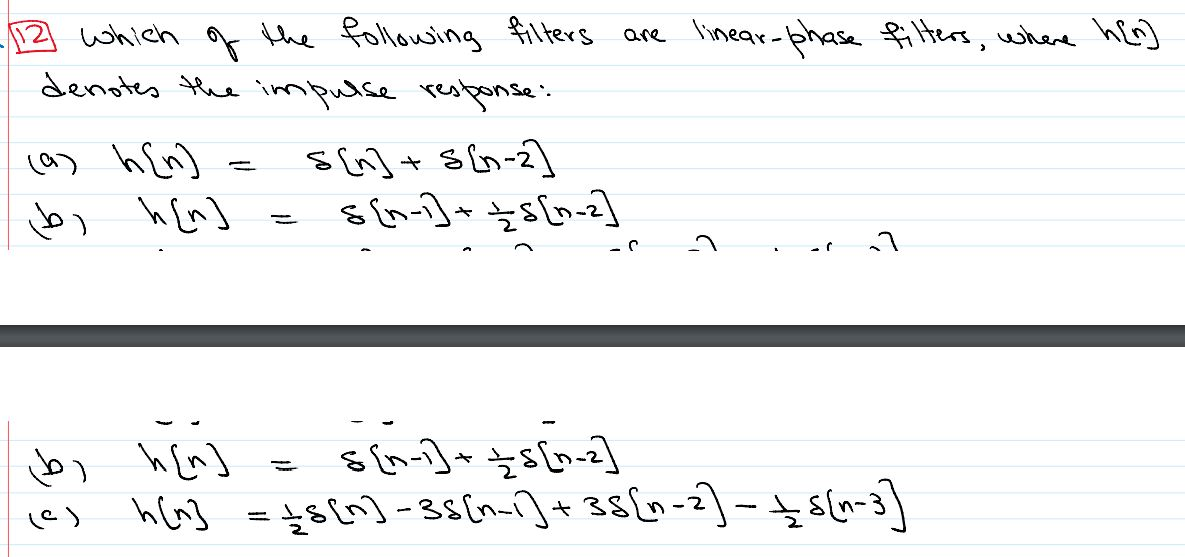 12 which of the following filters are linear-phase filters, where h[n]
denotes the impulse response:
(a) h[n] = δ[n] + δ[n-2]
(b) h[n] = δ[n-1] + ½δ[n-2]
(b) h[n] = δ[n-1] + ½δ[n-2]
(c) h[n] = ½δ[n] - 3δ[n-1] + 3δ[n-2] - ½δ[n-3]